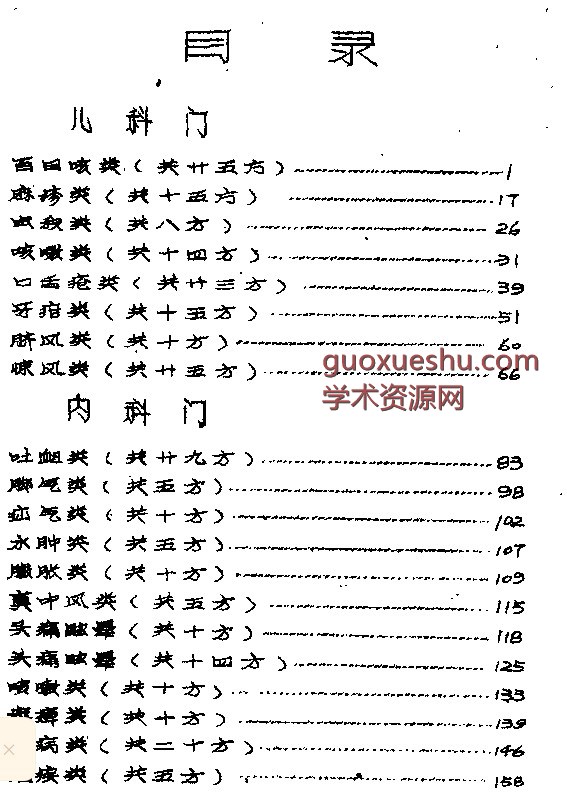 目 录
儿科门
百日咳类(共廿五方) 1
麻疹类(共十五方) 17
虫积类(共八方) 26
咳嗽类(共十四方) 31
口舌疮类(共廿三方) 39
牙疳类(共十五方) 51
脐风类(共十方) 60
惊风类(共廿五方) 66
guoxueshu.com
学术资源网
内科门
吐血类(共廿九方) 83
脚气类(共五方) 98
疝气类(共十方) 102
水肿类(共五方) 107
臌胀类(共十方) 109
真中风类(共五方) 115
头痛眩晕(共十方) 118
头痛眩晕(共十四方) 125
咳嗽类(共十方) 133
类(共十方) 139
病类(共二十方) 146
痰类(共五方) 158